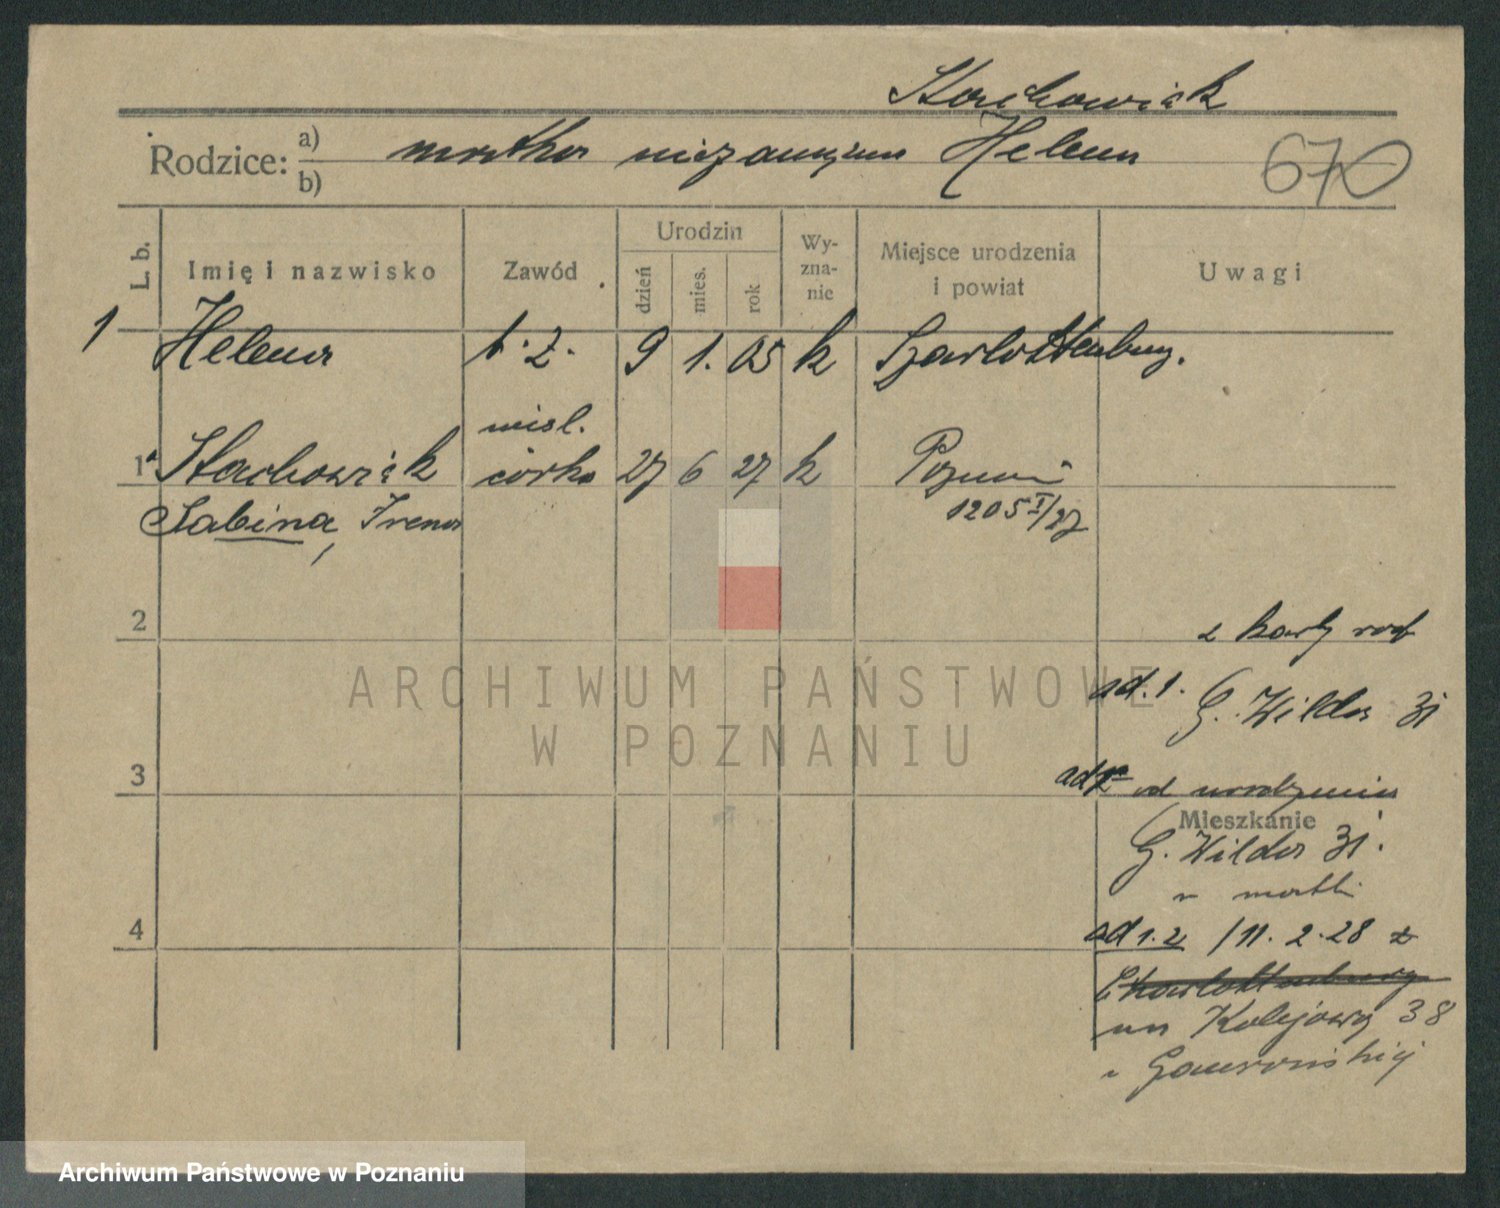 Stachowiak
Rodzice: a) b) matka niezamężna Helena
670
L. b. Imię i nazwisko Zawód Urodzin dzień mies. rok Wy-zna-nie Miejsce urodzenia i powiat Uwagi
1 Helena b. z. 9 1. 05 k Szarlottenburg.
nieśl.
1a Stachowiak córka 27 6 27 k Poznań
Sabina, Irena 1205 I/27
2
z karty rodz
ad. 1. G. Wilda 31
3
ad 1a od urodzenia
Mieszkanie
G. Wilda 31.
u matki
4
ad 1.2 / 11. 2. 28 z
Charlottenburg
na Kolejową 38
u Gawrońskiej
ARCHIWUM PAŃSTWOWE
W POZNANIU
Archiwum Państwowe w Poznaniu